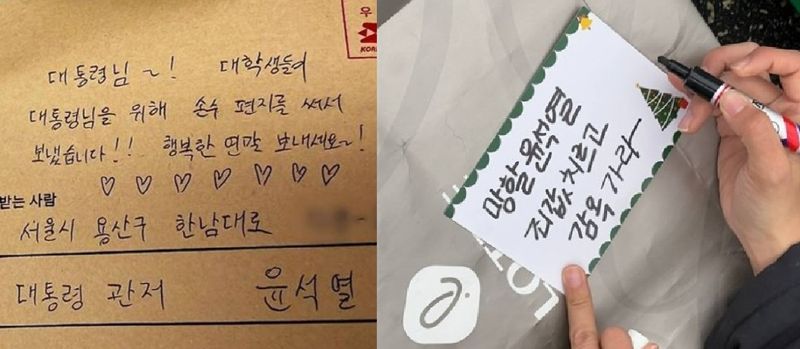 우
KOR
대통령님 ~! 대학생들이
대통령님을 위해 손수 편지를 써서
보냈습니다!! 행복한 연말 보내세요~!
♡ ♡ ♡ ♡ ♡ ♡ ♡
받는 사람
서울시 용산구 한남대로
대통령 관저 윤석열
망할 윤석열
죄값 치르고
감옥 가라
LO